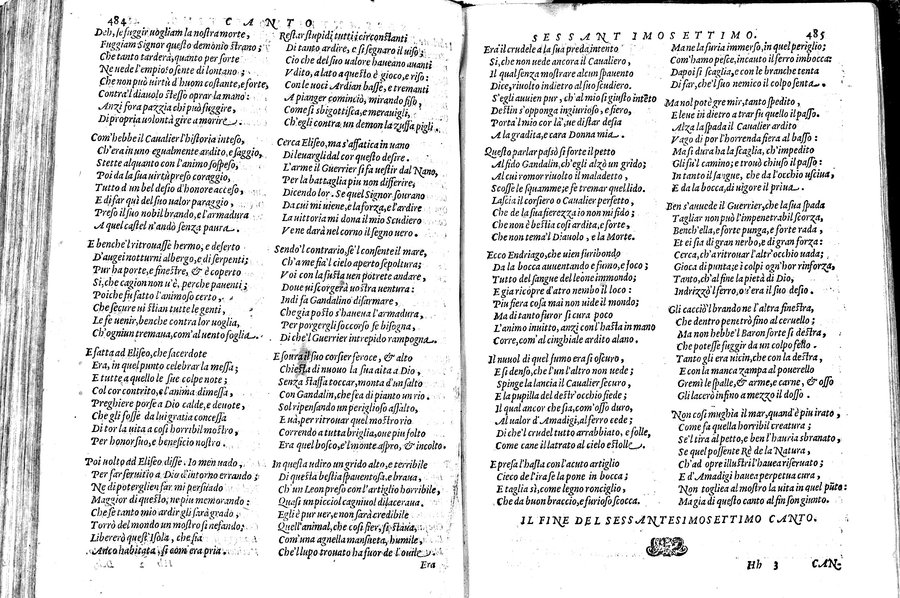 484 CANTO
Deh, se fuggir uogliam la nostra morte,
Fuggiam Signor questo demonio strano;
Che tanto tarderà, quanto per sorte
Ne uede l'empio, o sente di lontano;
Che non può uirtù d'huom costante, e forte,
Contra'l diauolo stesso oprar la mano:
Anzi fora pazzia chi può fuggire,
Di propria uolontà gire a morire.
Com'hebbe il Caualier l'historia inteso,
Ch'era in uno egualmente ardito, e saggio,
Stette alquanto con l'animo sospeso,
Poi da la sua uirtù preso coraggio,
Tutto d'un bel desio d'honore acceso,
E di far quì del suo ualor paraggio,
Preso il suo nobil brando, e l'armadura
A quel castel n'andò senza paura.
E benche'l ritrouasse hermo, e deserto
D'augei notturni albergo, e di serpenti;
Pur ha porte, e finestre, & è coperto
Si, che cagion non u'è, perche pauenti;
Poi che fu fatto l'animo certo,
Che secure ui stian tutte le genti,
Le fe uenir, benche contra lor uoglia,
Ch'ogniun tremaua, com'al uento foglia.
E fatta ad Eliseo, che sacerdote
Era, in quel punto celebrar la messa;
E tutte a quello le sue colpe note;
Col cor contrito, e l'anima dimessa,
Preghiere porse a Dio calde, e deuote,
Che gli fosse da lui gratia concessa
Di tor la uita a così horribil mostro,
Per honor suo, e beneficio nostro.
Poi uolto ad Eliseo disse. Io men uado,
Per far seruitio a Dio d'intorno errando;
Ne di poterglien far mi persuado
Maggior di questo, ne piu memorando:
Che se tanto mio ardir gli sarà grado,
Torrò del mondo un mostro sì nefando;
Libererò quest'Isola, che sia
Anco habitata, sì com'era pria.
Restar stupidi tutti i circonstanti
Di tanto ardire, e si segnaro il uiso;
Cio che del suo ualore haueano auanti
Vdito, a lato a questo è gioco, e riso:
Con le uoci Ardian basse, e tremanti
A pianger cominciò, mirando fiso,
Come si sbigottisca, e merauigli,
Ch'egli contra un demon la zuffa pigli.
Cerca Eliseo, ma s'affatica in uano
Di leuargli dal cor questo desire.
L'arme il Guerrier si fa uestir dal Nano,
Per la battaglia piu non differire,
Dicendo lor. Se quel Signor sourano
Da cui mi uiene, e la forza, e l'ardire
La uittoria mi dona il mio Scudiero
Vene darà nel corno il segno uero.
Sendo'l contrario, se'l consente il mare,
Ch'a me fia'l cielo aperto sepoltura;
Voi con la fusta u'en potrete andare,
Doue ui scorgerà uostra uentura:
Indi fa Gandalino disarmare,
Che gia posto s'haueua l'armadura,
Per porgergli soccorso se bisogna,
Di che'l Guerrier intrepido rampogna.
E soura il suo corsier feroce, & alto
Chiesta di nuouo la sua aita a Dio,
Senza staffa toccar, monta d'un salto
Con Gandalin, che sea di pianto un rio.
Sol ripensando un periglioso assalto,
E uà, per ritrouar quel mostro rio
Correndo a tutta briglia, oue piu folto
Era quel bosco, e'l monte aspro, & incolto.
In questa udiro un grido alto, e terribile
Di questa bestia spauentosa, e braua,
Ch'un Leon preso con l'artiglio horribile,
Quasi un picciol cagniuol dilaceraua.
Egli è pur uer, e non sarà credibile
Quell'animal, che così fier, si staua,
Com'una agnella mansueta, humile,
Che'l lupo trouato ha fuor de l'ouile.
Era
SESSANTIMOSETTIMO. 485
Era il crudele a la sua preda intento
Sì, che non uede ancora il Caualiero,
Il qual senza mostrare alcun spauento
Dice, riuolto indietro al suo scudiero.
S'egli auuien pur, ch'al mio sì giusto intẽto
Destin s'opponga ingiurioso, e fiero,
Porta'l mio cor là, ue distar desia
A la gradita, e cara Donna mia.
Questo parlar passò sì forte il petto
Al fido Gandalin, ch'egli alzò un grido;
Al cui romor riuolto il maladetto,
Scosse le squamme; e fe tremar quel lido.
Lascia il corsiero o Caualier perfetto,
Che de la sua fierezza io non mi fido;
Che non è bestia così ardita, e forte,
Che non tema'l Diauolo, e la Morte.
Ecco Endriago, che uien furibondo
Da la bocca auuentando e fumo, e foco;
Tutto del sangue del leone immondo;
E gia ricopre d'atro nembo il loco:
Piu fiera cosa mai non uide il mondo;
Ma di tanto furor si cura poco
L'animo inuitto, anzi con l'hasta in mano
Corre, com'al cinghiale ardito alano.
Il nuuol di quel fumo era sì oscuro,
E sì denso, che l'un l'altro non uede;
Spinge la lancia il Caualier securo,
E la pupilla del destr'occhio fiede;
Il qual ancor che sia, com'osso duro,
Al ualor d'Amadigi, al ferro cede;
Di che'l crudel tutto arrabbiato, e folle,
Come cane illatrato al cielo estolle.
E presa l'hasta con l'acuto artiglio
Cieco de l'ira se la pone in bocca;
E taglia sì, come legno ronciglio,
Che da buon braccio, e furioso scocca.
Ma ne la furia immerso, in quel periglio;
Com'hamo pesce, incauto il ferro imbocca:
Da poi si scaglia, e con le branche tenta
Di far, che'l suo nemico il colpo senta.
Ma nol potè gremir, tanto spedito,
E leue in dietro a trar fu quello il passo.
Alza la spada il Caualier ardito
Vago di por l'horrenda fiera al basso:
Ma sì dura ha la scaglia, ch'impedito
Gli fu'l camino; e trouò chiuso il passo:
In tanto il sangue, che da l'occhio usciua,
E da la bocca, di uigore il priua.
Ben s'auuede il Guerrier, che la sua spada
Tagliar non può l'impenetrabil scorza,
Bench'ella, e forte punga, e forte rada,
Et ei sia di gran nerbo, e di gran forza:
Cerca, ch'a ritrouar l'altr'occhio uada;
Gioca di punta; e i colpi ogn'hor rinforza,
Tanto, ch'al fine la pietà di Dio,
Indrizzò'l ferro, ou'era il suo desio.
Gli cacciò'l brando ne l'altra finestra,
Che dentro penetrò fino al ceruello;
Ma non hebbe'l Baron forte sì destra,
Che potesse fuggir da un colpo fello.
Tanto gli era uicin, che con la destra,
E con la manca zampa al pouerello
Gremì le spalle, & arme, e carne, & osso
Gli lacerò sino a mezzo il dosso.
Non così mughia il mar, quand'è piu irato,
Come fa quella horribil creatura;
Se'l tira al petto, e ben l'hauria sbranato,
Se quel possente Rè de la Natura,
Ch'ad opre illustri l'hauea riseruato;
E d'Amadigi hauea perpetua cura,
Non togliea al mostro la uita in quel pũto:
Ma gia di questo canto al fin son giunto.
IL FINE DEL SESSANTESIMOSETTIMO CANTO.
Hh 3 CAN-